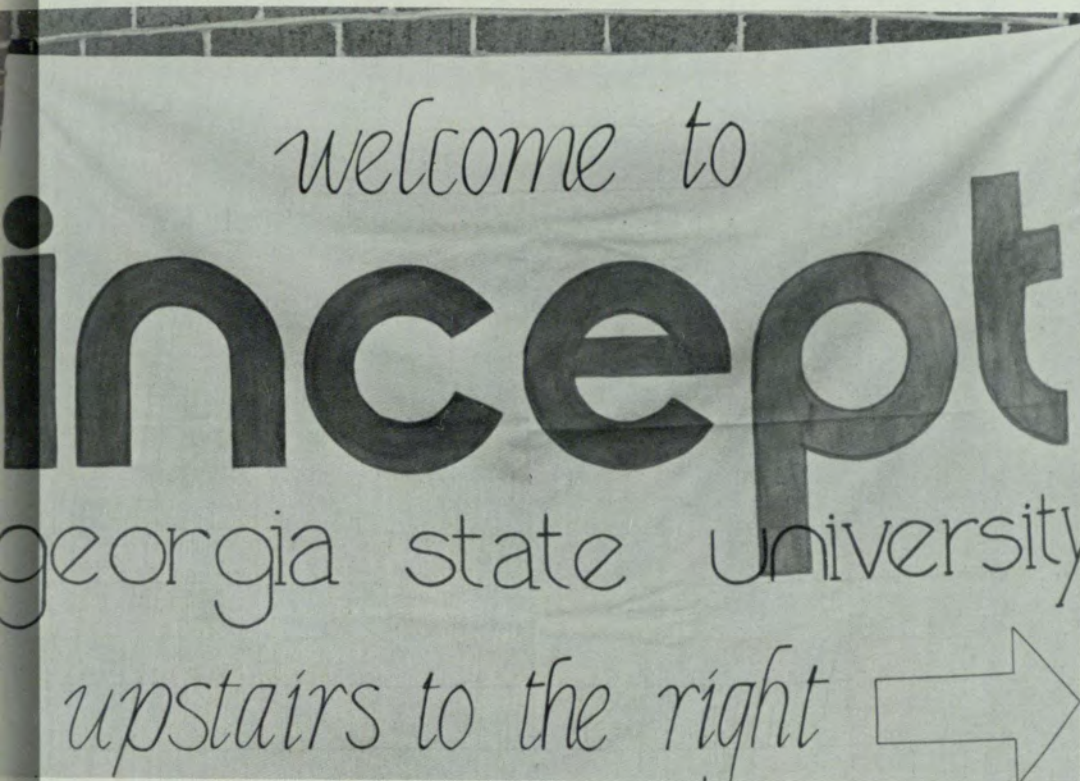 welcome to
incept
georgia state university
upstairs to the right